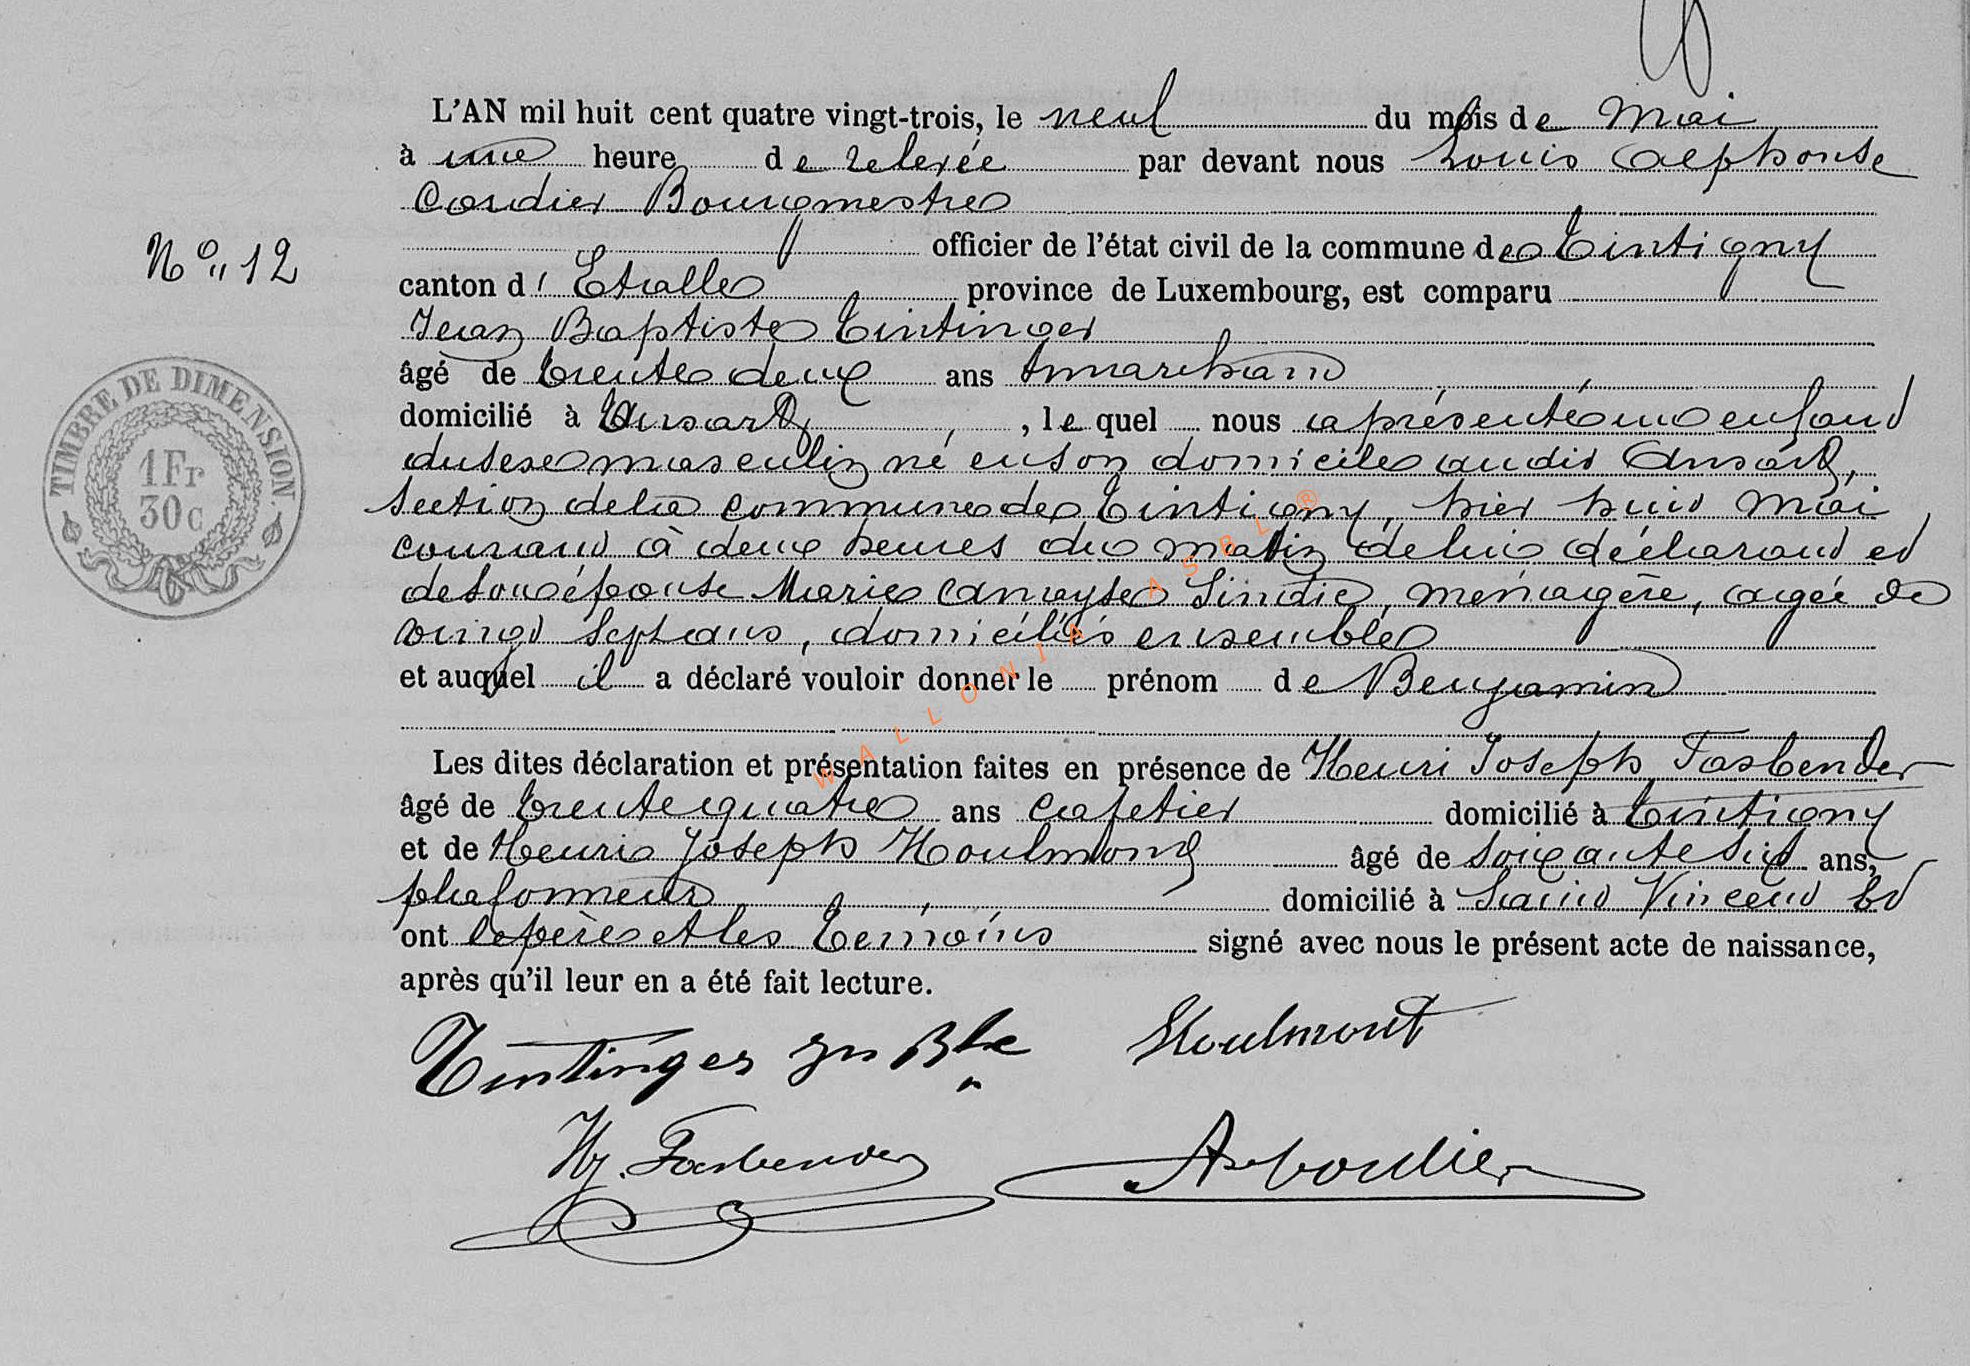 L'AN mil huit cent quatre vingt-trois, le neuf du mois de Mai
à une heure de relevée par devant nous Louis Alphonse
Cordier Bourgmestre
officier de l'état civil de la commune de Tintigny
N° 12
canton d' Etalle province de Luxembourg, est comparu
Jean Baptiste Tintinger
âgé de trente deux ans marchand
domicilié à Ansart, lequel nous a présenté un enfant
du sexe masculin né en son domicile au dit Ansart,
section de la commune de Tintigny, hier huit Mai
courant à deux heures du matin de lui déclarant et
de son épouse Marie, ménagère, agée de
vingt sept ans, domiciliés ensemble
et auquel il a déclaré vouloir donner le prénom de Benjamin
Les dites déclaration et présentation faites en présence de Henri Joseph Fasbender
âgé de trente quatre ans cafetier domicilié à Tintigny
et de Henri Joseph Houlmont âgé de soixante six ans,
plafonneur domicilié à Saint Vincent Et
ont le père et les témoins signé avec nous le présent acte de naissance,
après qu'il leur en a été fait lecture.
Tintinger Jn Bte Houlmont
Hj. Fasbender A Cordier
TIMBRE DE DIMENSION.
1 Fr
30 C
WALLONIA ASBL ®